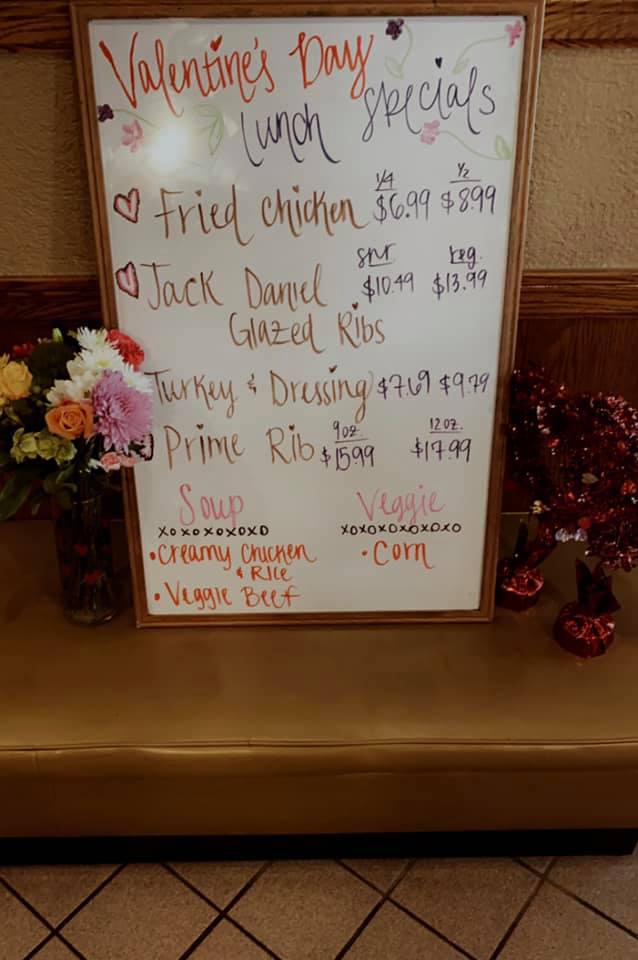 Valentine's Day
Lunch Specials
1/4 1/2
Fried Chicken $6.99 $8.99
smr reg.
Jack Daniel $10.49 $13.99
Glazed Ribs
Turkey & Dressing $7.69 $9.79
9oz. 12oz.
Prime Rib $15.99 $17.99
Soup Veggie
XOXOXOXOXO XOXOXOXOXOXO
•Creamy Chicken •Corn
& Rice
•Veggie Beef